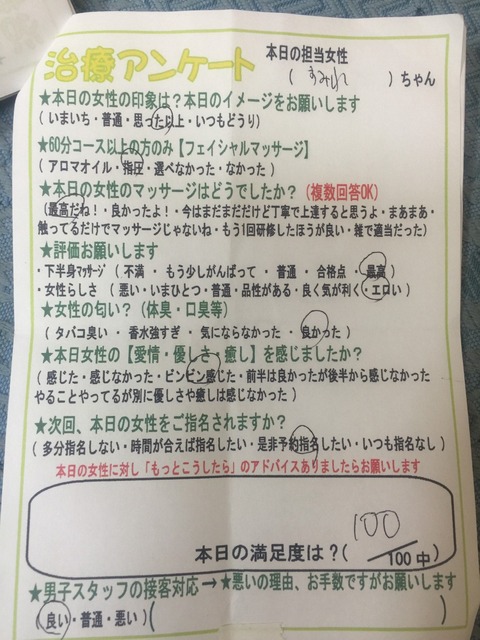 治療アンケート
本日の担当女性
( すみれ )ちゃん
★本日の女性の印象は？本日のイメージをお願いします
( いまいち・普通・思った以上・いつもどうり)
★60分コース以上の方のみ【フェイシャルマッサージ】
( アロマオイル・指圧・選べなかった・なかった )
★本日の女性のマッサージはどうでしたか？(複数回答OK)
(最高だね！・良かったよ！・今はまだまだだけど丁寧で上達すると思うよ・まあまあ・
触ってるだけでマッサージじゃないね・もう1回研修したほうが良い・雑で適当だった)
★評価お願いします
・下半身マッサージ ( 不満 ・ もう少しがんばって ・ 普通 ・ 合格点 ・ 最高 )
・女性らしさ ( 悪い・いまひとつ・普通・品性がある・良く気が利く・エロい )
★女性の匂い？ (体臭・口臭等)
( タバコ臭い ・ 香水強すぎ ・ 気にならなかった ・ 良かった )
★本日女性の【愛情・優しさ・癒し】を感じましたか？
( 感じた・感じなかった・ビンビン感じた・前半は良かったが後半から感じなかった
やることやってるが別に優しさや癒しは感じなかった )
★次回、本日の女性をご指名されますか？
( 多分指名しない・時間が合えば指名したい・是非予約指名したい・いつも指名なし )
本日の女性に対し「もっとこうしたら」のアドバイスありましたらお願いします
本日の満足度は？( 100/100中)
★男子スタッフの接客対応→★悪いの理由、お手数ですがお願いします
(良い・普通・悪い )( )